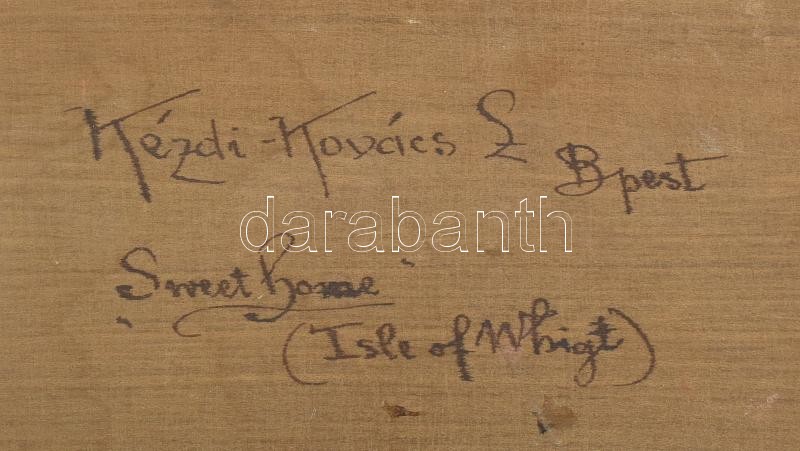 Kézdi-Kovács L
Bpest
darabanth
„Sweet home"
(Isle of Whigt)